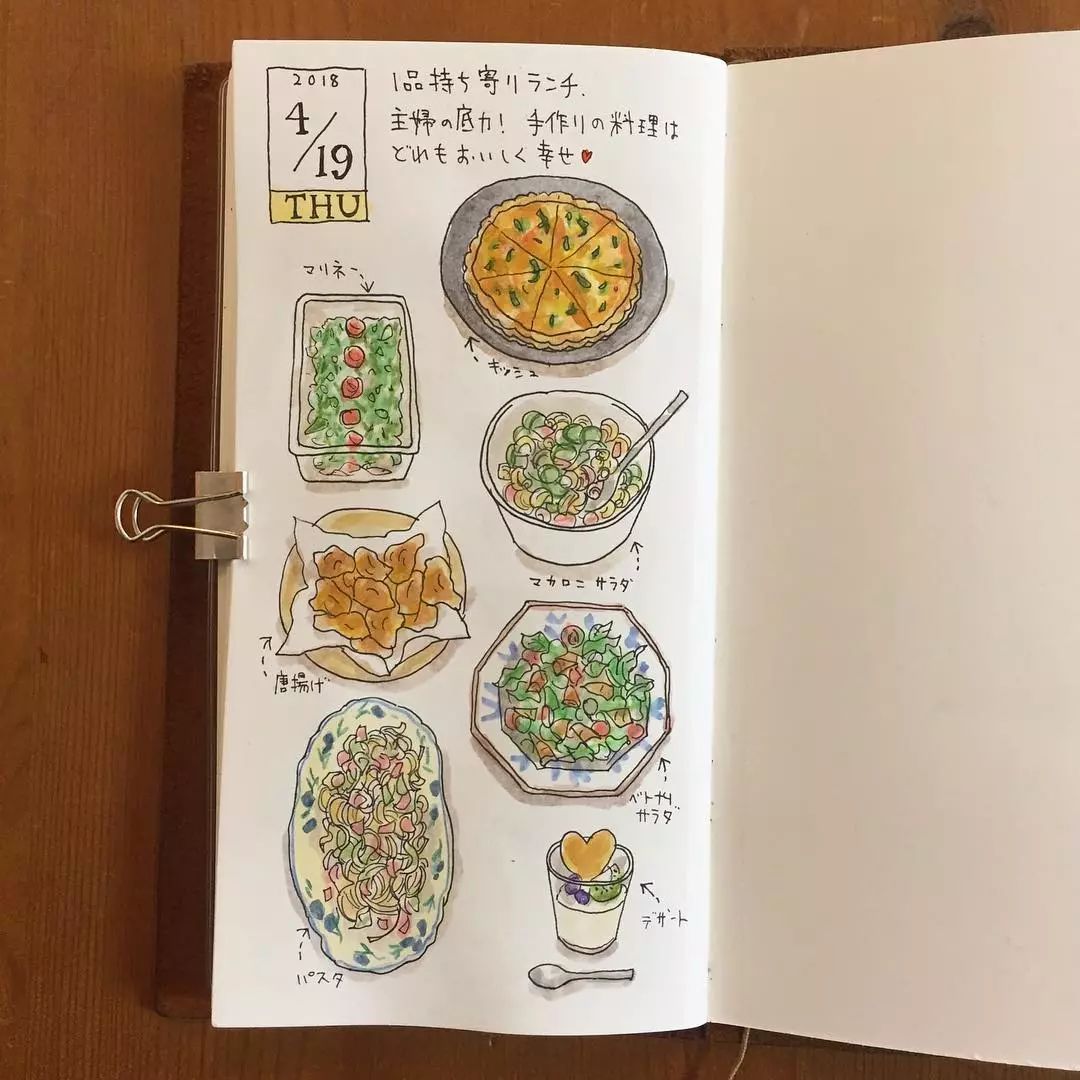 2018
4/19
THU
1品持ち寄りランチ、
主婦の底力! 手作りの料理は
どれもおいしく幸せ
マリネ
キッシュ
マカロニサラダ
唐揚げ
ベトナム
サラダ
デザート
パスタ